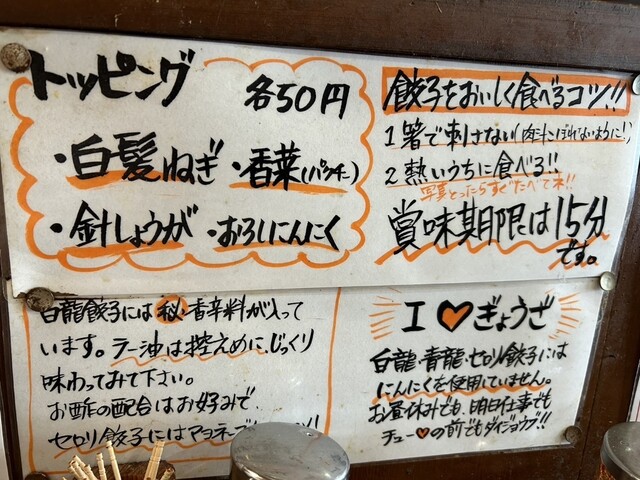 トッピング
各50円
・白髪ねぎ ・香菜(パクチー)
・針しょうが ・おろしにんにく
餃子をおいしく食べるコツ!!
1 箸で刺さない(肉汁こぼれないように!)
2 熱いうちに食べる!!
写真とったらすぐたべて下さい!!
賞味期限は15分
です。
白龍餃子には㊙香辛料が入って
います。ラー油は控えめに、じっくり
味わってみて下さい。
お酢の配合はお好みで、
セロリ餃子にはマヨネーズ
I ♥ ぎょうざ
白龍・青龍・セロリ餃子には
にんにくを使用していません。
お昼休みでも、明日仕事でも
チュー♥の前でもダイジョウブ!!